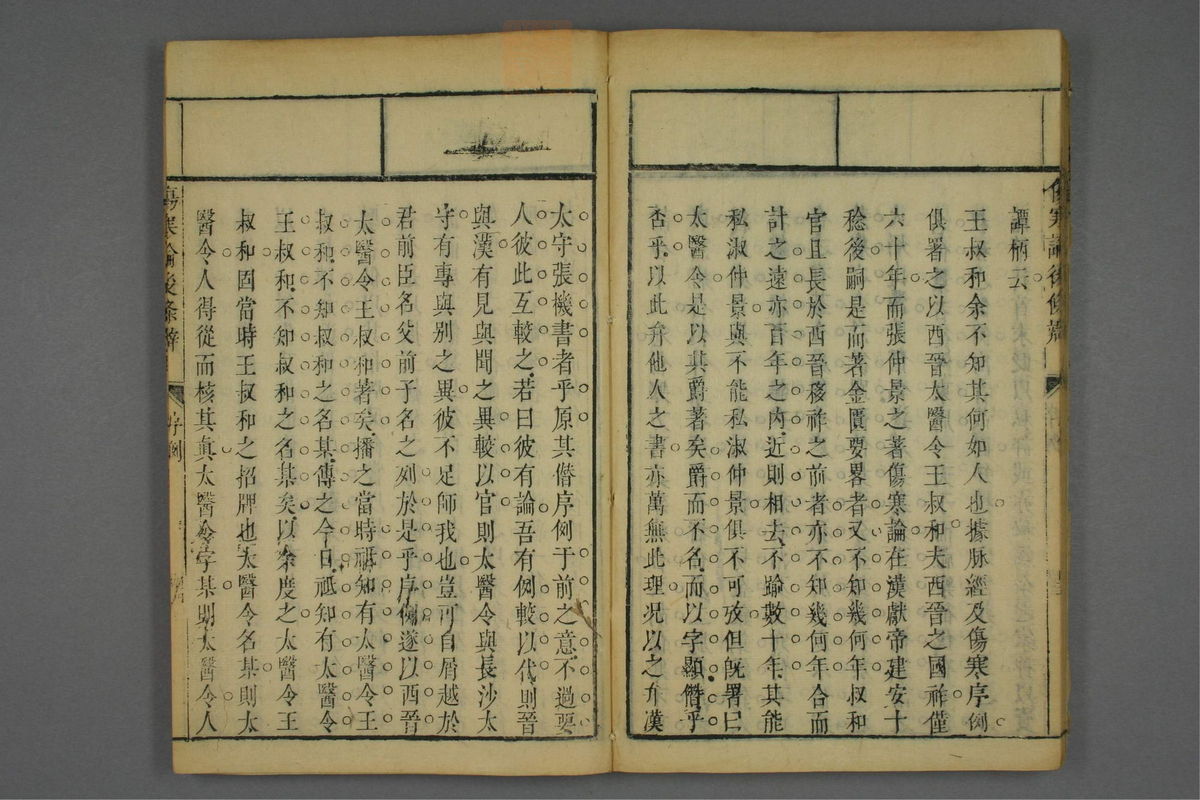 傷寒論後條辨
譚柄云
王叔和余不知其何如人也據脉經及傷寒序例
俱署之以西晉太醫令王叔和夫西晉之國祚僅
六十年而張仲景之著傷寒論在漢獻帝建安十
稔後嗣是而著金匱要畧者又不知幾何年叔和
官且長於西晉移祚之前者亦不知幾何年合而
計之遠亦百年之內近則相去不踰數十年其能
私淑仲景與不能私淑仲景俱不可攷但旣署曰
太醫令是以其爵著矣爵而不名而以字顯僭乎
否乎以此弁他人之書亦萬無此理况以之弁漢
太守張機書者乎原其僭序例于前之意不過要
人彼此互較之若曰彼有論吾有例較以代則晉
與漢有見與聞之異較以官則太醫令與長沙太
守有專與别之異彼不足師我也豈可自屑越於
君前臣名父前子名之列於是乎序例遂以西晉
太醫令王叔和著矣播之當時祗知有太醫令王
叔和不知叔和之名某傳之今日祗知有太醫令
王叔和不知叔和之名某矣以余度之太醫令王
叔和固當時王叔和之招牌也太醫令名某則太
醫令人得從而核其眞太醫令字某則太醫令人
傷寒論後條辨
序例